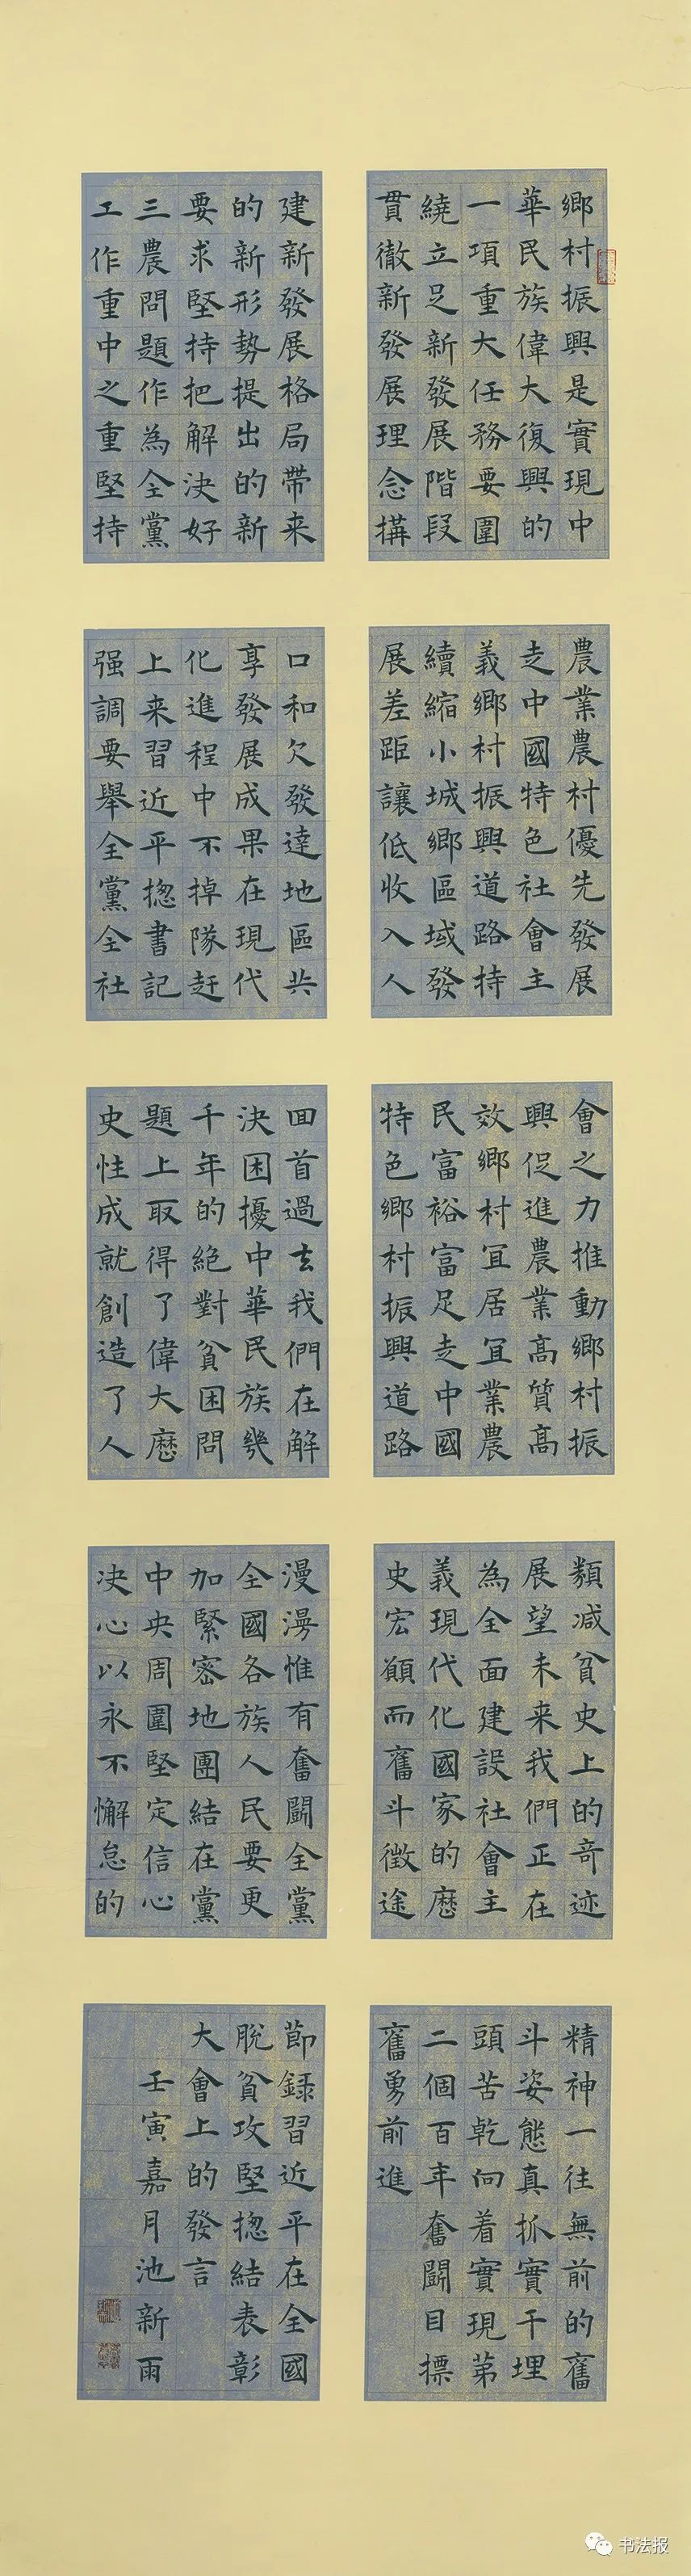 鄉村振興是實現中
華民族偉大復興的
一項重大任務要圍
繞立足新發展階段
貫徹新發展理念構
建新發展格局帶来
的新形勢提出的新
要求堅持把解決好
三農問題作為全黨
工作重中之重堅持
農業農村優先發展
走中國特色社會主
義鄉村振興道路持
續縮小城鄉區域發
展差距讓低收入人
口和欠發達地區共
享發展成果在現代
化進程中不掉隊赶
上来習近平揔書記
强調要舉全黨全社
會之力推動鄉村振
興促進農業高質高
效鄉村宜居宜業農
民富裕富足走中國
特色鄉村振興道路
回首過去我們在解
決困擾中華民族幾
千年的絕對貧困問
題上取得了偉大歷
史性成就創造了人
類减貧史上的奇迹
展望未来我們正在
為全面建設社會主
義現代化國家的歷
史宏願而奮斗徵途
漫漫惟有奮鬭全黨
全國各族人民要更
加緊密地團結在黨
中央周圍堅定信心
决心以永不懈怠的
精神一往無前的奮
斗姿態真抓實干埋
頭苦乾向着實現第
二個百年奮鬭目標
奮勇前進
節録習近平在全國
脫貧攻堅揔結表彰
大會上的發言
壬寅嘉月池新雨
书法报